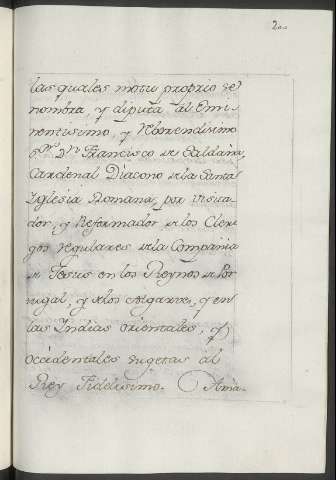 2..
las quales motu proprio se
nombra, y diputa al Emi-
nentisimo, y Rberendisimo
Sr. Dn. Francisco de Saldaña,
Cardenal Diacono de la Santa
Iglesia Romana, por visita-
dor, y Reformador de los Cleri-
gos regulares de la Compañia
de Jesus en los Reynos de Por-
tugal, y de los Algarves, y en
las Indias orientales, y
occidentales sugetas al
Rey Fidelisimo.